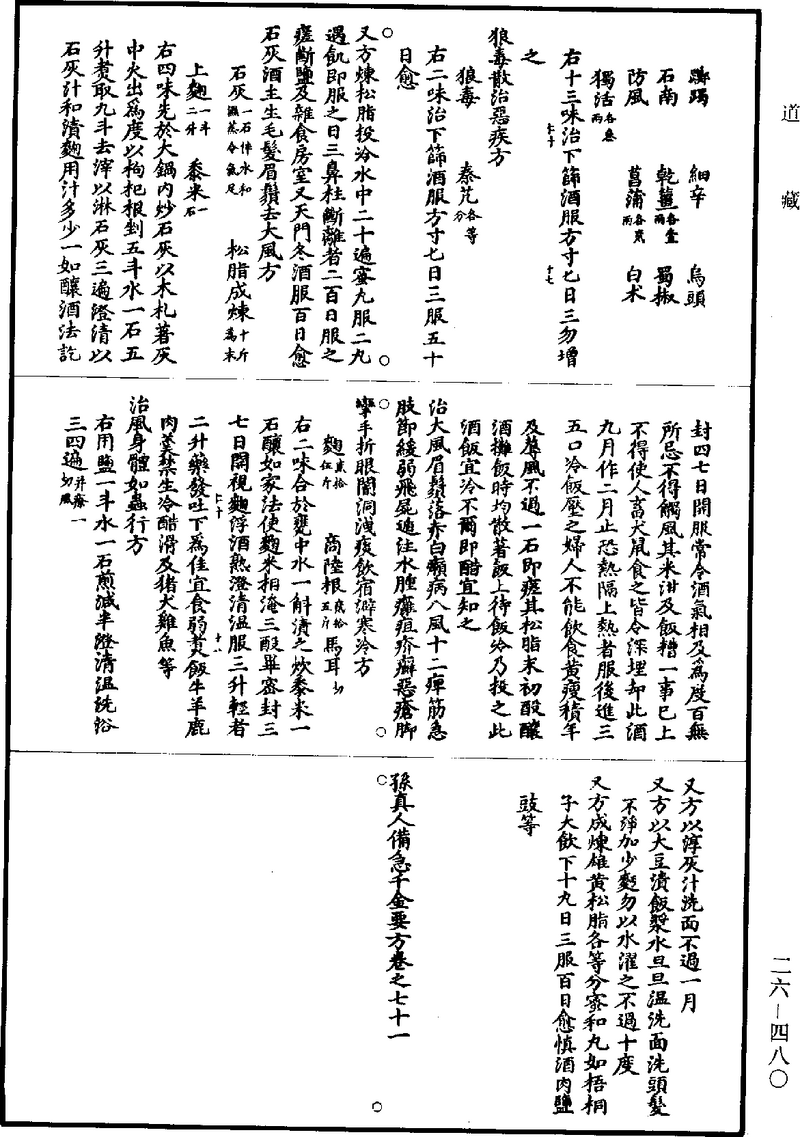 道藏
躑躅　細辛　烏頭
石南　乾薑各壹兩　蜀椒
防風　菖蒲各貳兩　白朮
獨活各叁兩
右十三味治下篩酒服方寸七日三勿增
之
狼毒散治惡疾方
狼毒　秦艽各等分
右二味治下篩酒服方寸七日三服五十
日愈
又方煉松脂投冷水中二十遍蜜丸服二丸
遇飢即服之日三鼻柱斷離者二百日服之
瘥斷鹽及雜食房室又天門冬酒服百日愈
石灰酒主生毛髮眉鬚去大風方
石灰一石伴水和濕蒸令氣足　松脂成煉十斤為末
上麴一斗二升　黍米一石
右四味先於大鍋內炒石灰以木札著灰
中火出為度以枸杞根剉五斗水一石五
升煑取九斗去滓以淋石灰三遍澄清以
石灰汁和漬麴用汁多少一如釀酒法訖
封四七日開服常令酒氣相及為度百無
所忌不得觸風其米泔及飯糟一事已上
不得使人畜犬鼠食之皆令深埋却此酒
九月作二月止恐熱隔上熱者服後進三
五口冷飯壓之婦人不能飲食黃瘦積年
及蓐風不過一石即瘥其松脂末初酘釀
酒攤飯時均散著飯上待飯冷乃投之此
酒飯宜冷不爾即醋宜知之
治大風眉鬚落赤白癩病八風十二痺筋急
肢節緩弱飛屍遁注水腫癰疽疥癬惡瘡脚
攣手折眼闇洞洩痰飲宿澼寒冷方
麴貳拾伍斤　商陸根貳拾五斤馬耳切
右二味合於甕中水一斛漬之炊黍米一
石釀如家法使麴米相淹三酘畢密封三
七日開視麴浮酒熟澄清溫服三升輕者
二升藥發吐下為佳宜食弱煑飯牛羊鹿
肉羹禁生冷醋滑及猪犬雞魚等
治風身體如蟲行方
右用鹽一斗水一石煎減半澄清溫洗浴
三四遍并療一切風
又方以淳灰汁洗面不過一月
又方以大豆漬飯漿水旦旦溫洗面洗頭髮
不淨加少麪勿以水濯之不過十度
又方成煉雄黃松脂各等分蜜和丸如梧桐
子大飲下十丸日三服百日愈慎酒肉鹽
豉等
孫真人備急千金要方卷之七十一
二六—四八〇